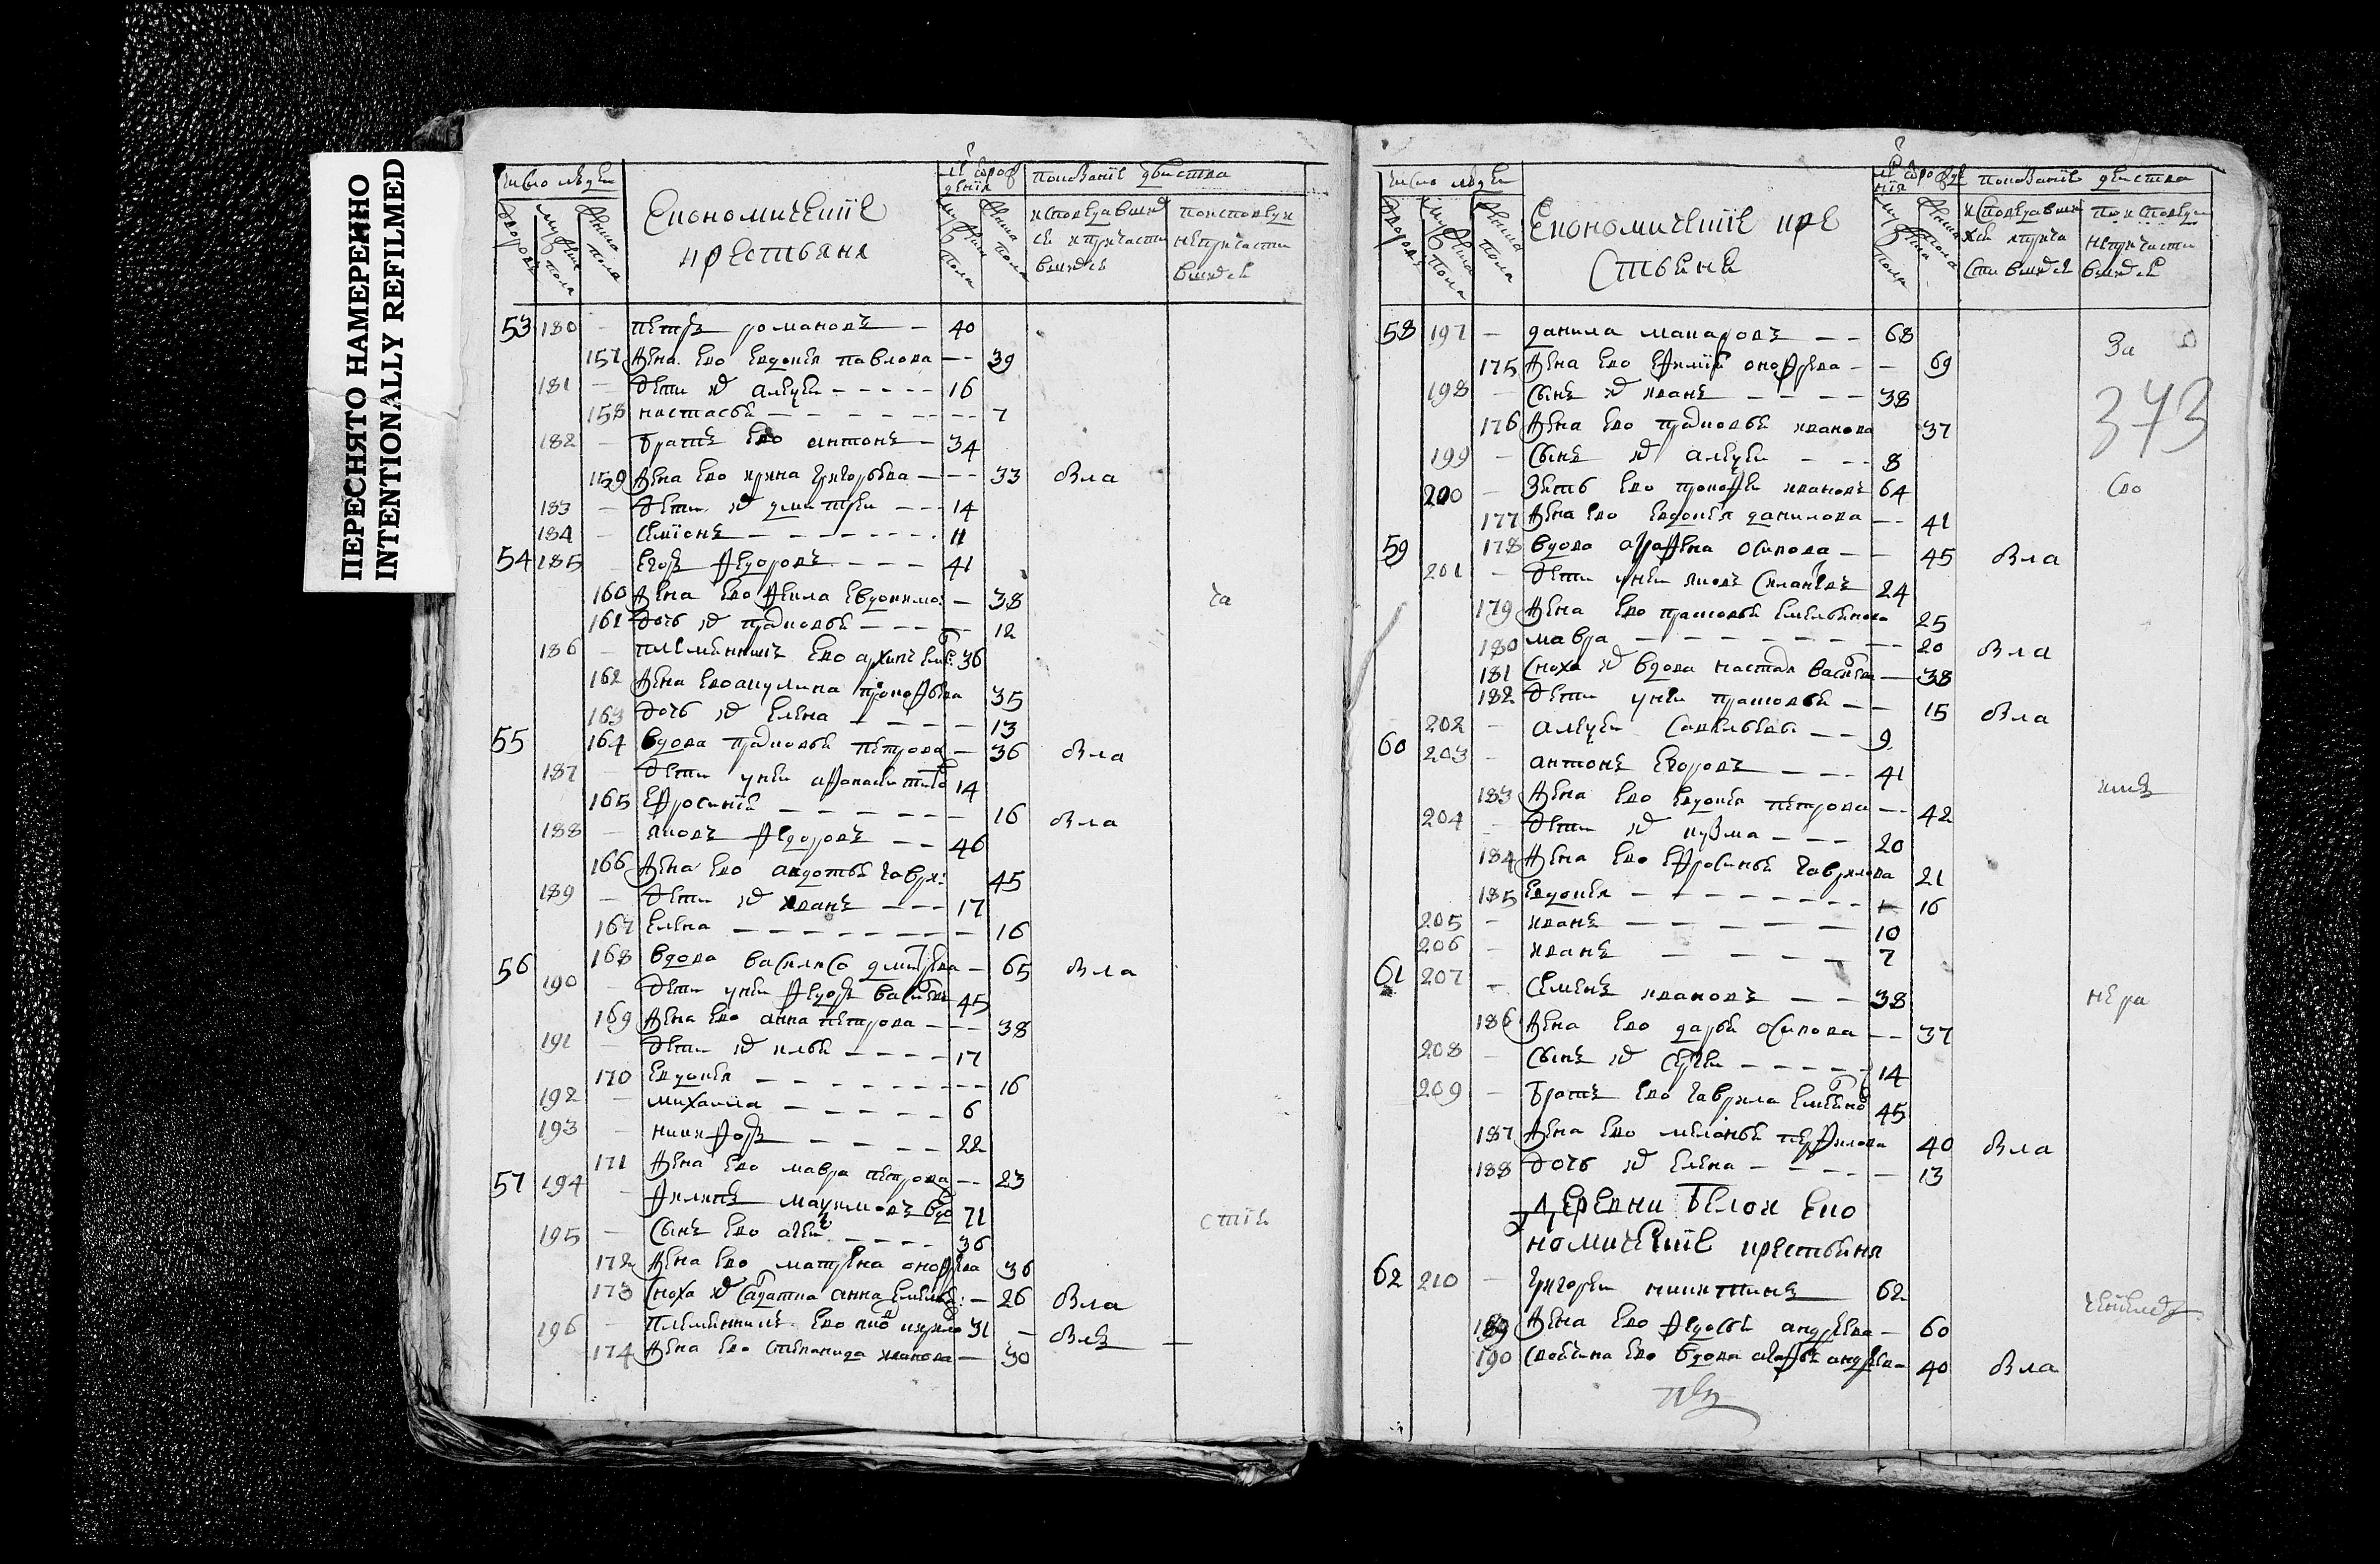 ПЕРЕСНЯТО НАМЕРЕННО
INTENTIONALLY REFILMED
число людеи
дворовъ
мужска пола
женска пола
Економическiе
крестьяня
лѣ ѿ рож
денiя
мужска пола
женска пола
показанiе двиства
исповѣдавших
ся и причасти
вшихся
по исповѣди
непричасти
вшихся
53 180 – петръ романовъ – 40
157 Жена ево евдокѣя павлова – – 39
181 – дети их алеѯеи – – – – – 16
158 настасья – – – – – – – 7
182 – братъ ево антонъ – 34
159 Жена ево ирина григорьева – – – 33 овла
183 – дети их дмитреи – – – 14
184 – семiонъ – – – – – – – 11
54 185 егоръ Ѳедоровъ – – – – 41
160 Жена ево Ѳекла евдокимо: – 38
161 дочь их прасковья – – – – – 12
186 – племянникъ ево архипъ 36
162 Жена ево акулина прокофьева 35
163 дочь их елена – – – – – 13
55 164 вдова прасковья петрова – 36 овла
187 – дети у неи афонасеи 14
165 ефросинiя – – – – – – 16 овла
188 – яковъ Ѳедоровъ – – 46
166 Жена ево авдотья гаври: 45
189 – дети их иванъ – – – 17
167 елена – – – – – – – – 16
56 168 вдова василиса дмитрева – 65 овла
190 – дети у неи Ѳедоръ васильевъ 45
169 Жена ево анна петрова – – – 38
191 – дети их илья – – – – 17
170 евдокѣя – – – – – – – – 16
192 – михаила – – – – – – 6
193 – никифоръ – – – – 22
171 Жена ево мавра петрова – – 23
57 194 – Филипъ маѯимовъ вдо 71
195 – сынъ ево агеи – – – – 36
172 Жена ево матрена онофрева 36
173 сноха их салдатка анна емельяно: – 26 овла
196 – племянникъ ево 31 – овлѣ –
174 Жена ево степанида иванова – 30
га
стiе
число людеи
дворовъ
мужска пола
женска пола
Економическiе кре
стьяня
лѣ ѿ рожде
нiя
мужска пола
женска пола
показанiе двиства
исповѣдавши
хся и прича
стившихся
по исповѣди
непричасти
вшихся
58 197 – данила макаровъ – – 68
За
175 Жена ево ефимiя онофрева – – 69
198 – сынъ их иванъ – – – – 38
373
176 Жена ево прасковья иванова 37
199 – сынъ их алеѯеи – – – 8
200 – зять ево прокофеи ивановъ 64
Сво
177 Жена ево евдокѣя данилова – – 41
59 178 вдова аграфена осипова – – 45 овла
201 – дети у неи яковъ 24
179 Жена ево прасковья емельянова 25
180 мавра – – – – – – – – 20 овла
181 сноха их вдова настася васильева – 38
182 дети у неи прасковья – – 15 овла
202 – алеѯеи савельевъ – – 9
60 203 – антонъ егоровъ – – – 41
183 Жена ево евдокѣя петрова – – 42
204 – дети их кузма – – – 20
184 Жена ево ефросинья гаврилова 21
185 евдокѣя – – – – – – – – 16
205 – иванъ – – – – – – 10
206 – иванъ – – – – – 7
61 207 – семенъ ивановъ – – – 38
нера
186 Жена ево дарья осипова – – 37
208 – сынъ их сергеи – – – – – 14
209 – братъ ево гаврила 45
187 Жена ево меланья перфилова 40 овла
188 дочь их елена – – – – – 13
деревни Белои еко
номическiе крестьяня
62 210 – григореи никитинъ 62
189 Жена ево Ѳедосья андреева – 60
190 своячина ево вдова агафья андреева 40 овла